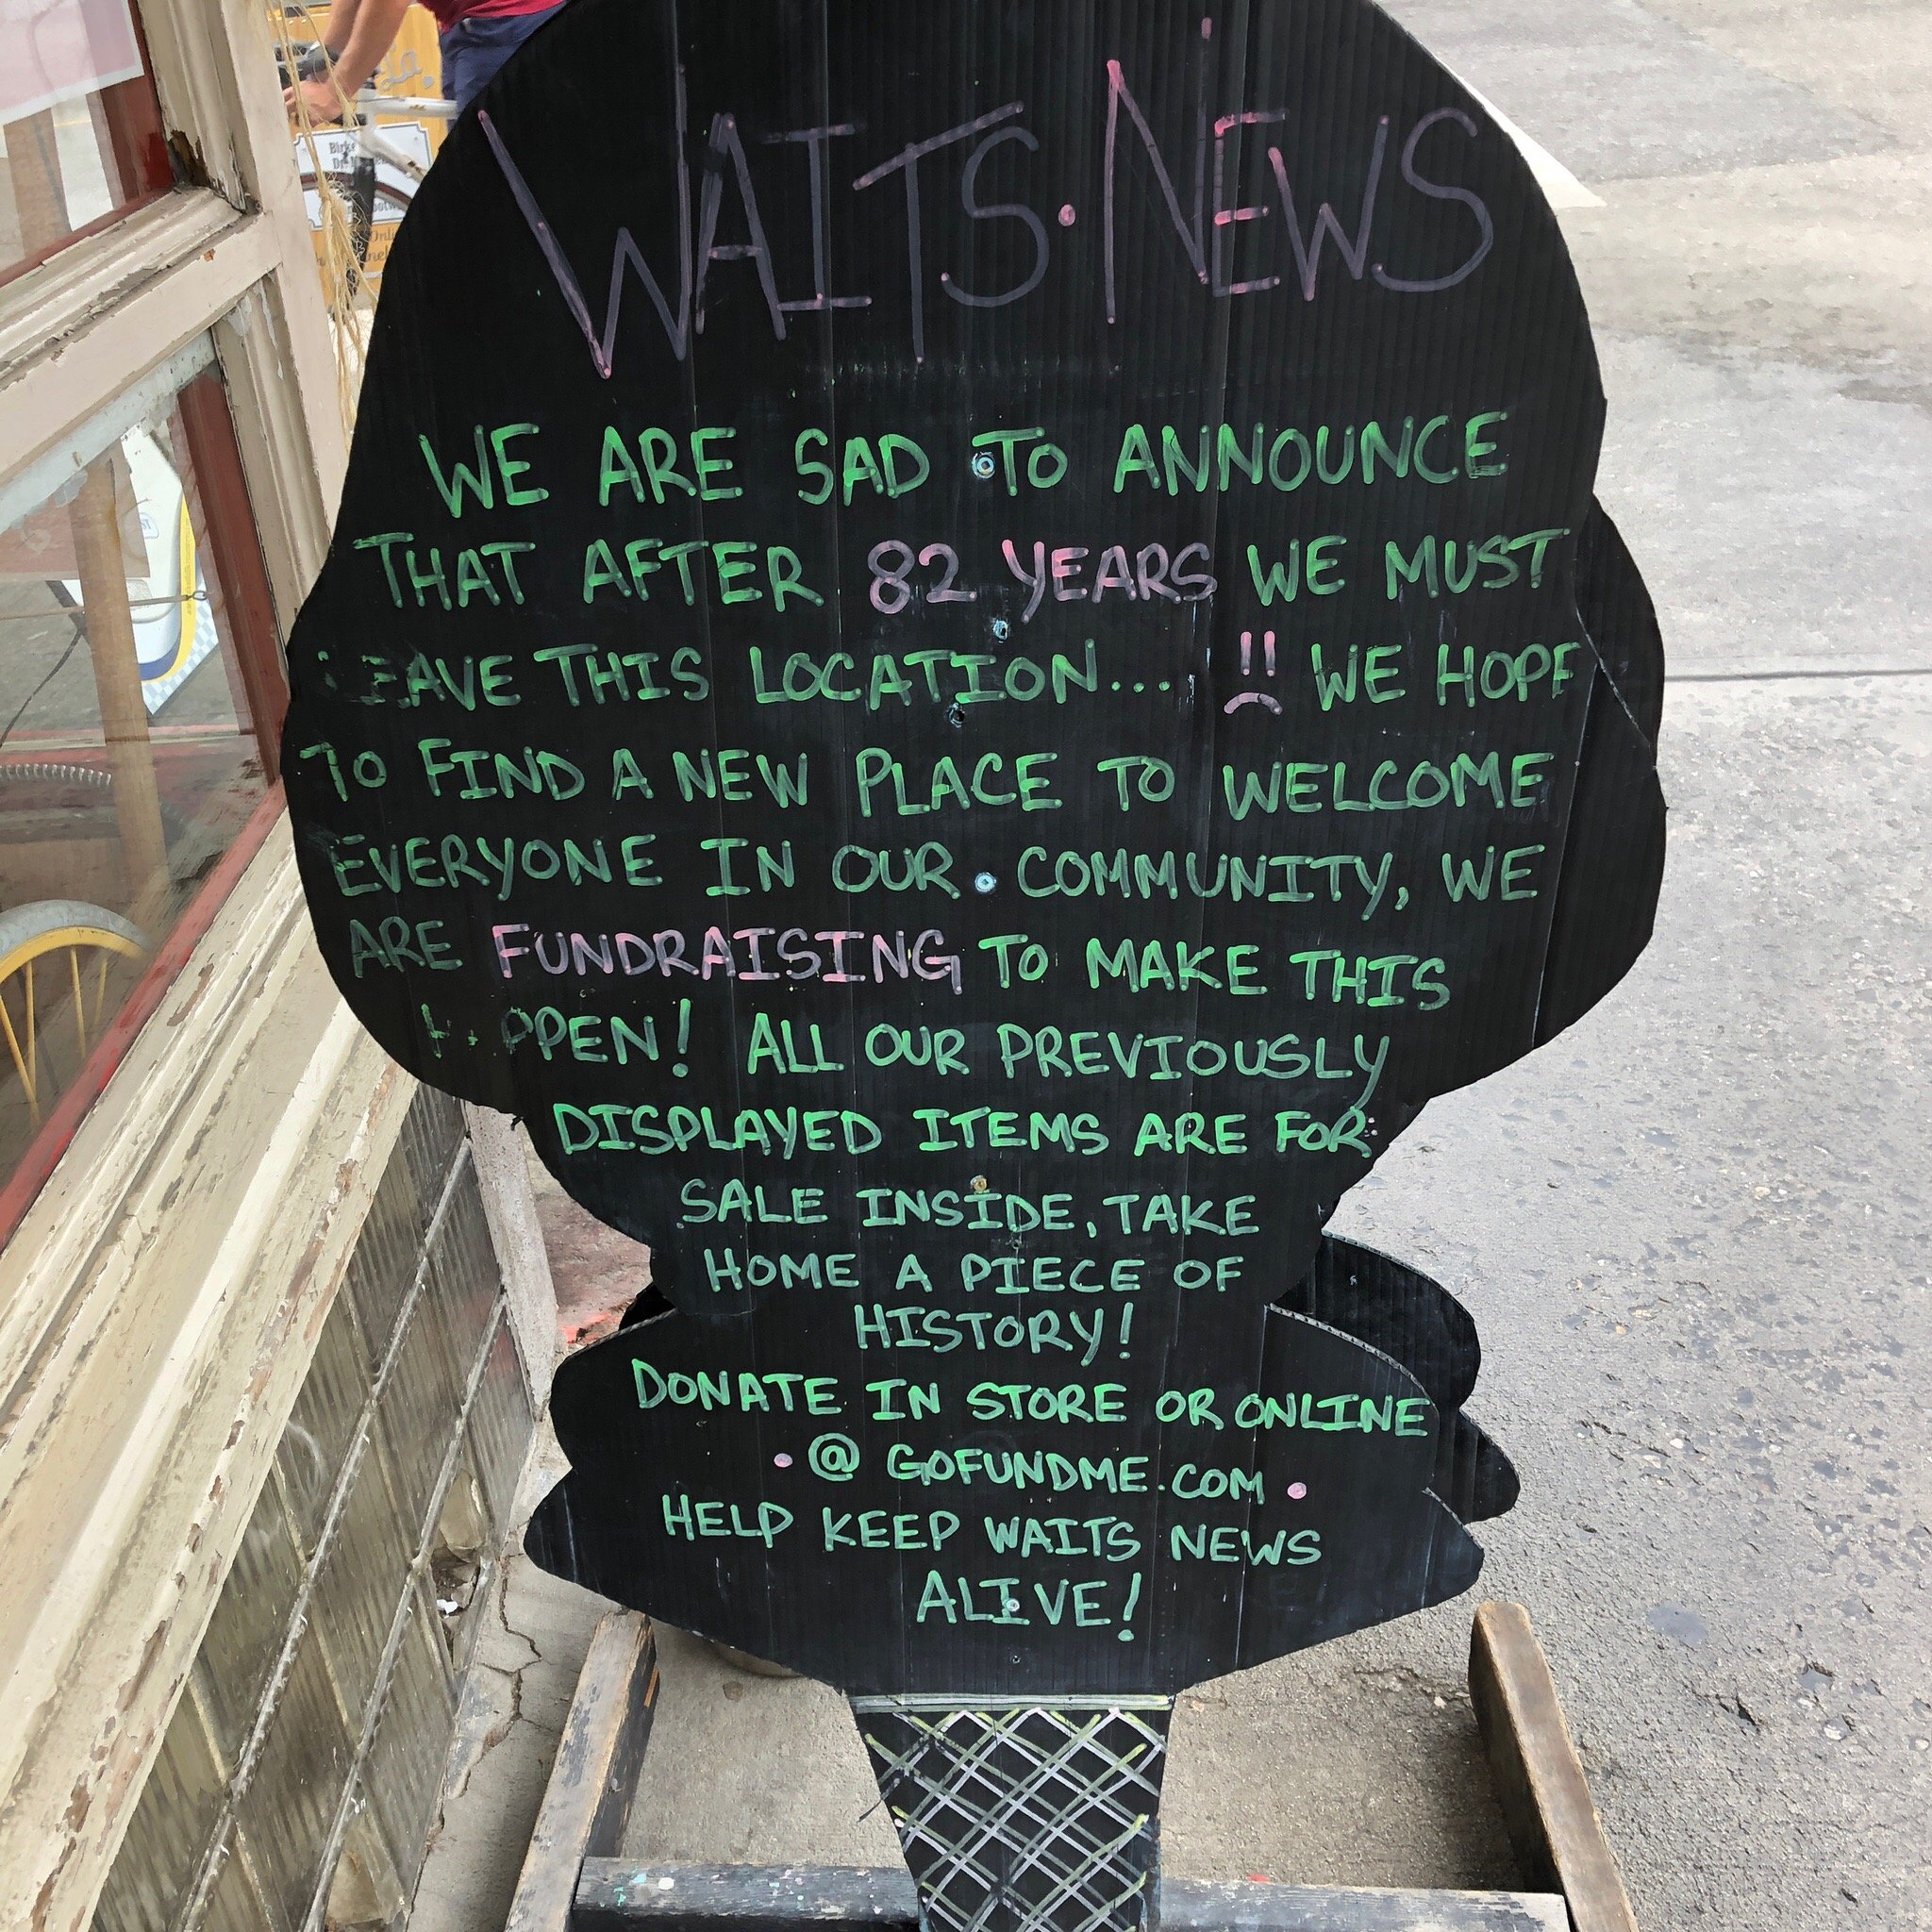 WAITS • NEWS
WE ARE SAD TO ANNOUNCE
THAT AFTER 82 YEARS WE MUST
LEAVE THIS LOCATION... WE HOPE
TO FIND A NEW PLACE TO WELCOME
EVERYONE IN OUR COMMUNITY, WE
ARE FUNDRAISING TO MAKE THIS
HAPPEN! ALL OUR PREVIOUSLY
DISPLAYED ITEMS ARE FOR
SALE INSIDE, TAKE
HOME A PIECE OF
HISTORY!
DONATE IN STORE OR ONLINE
• @ GOFUNDME.COM •
HELP KEEP WAITS NEWS
ALIVE!